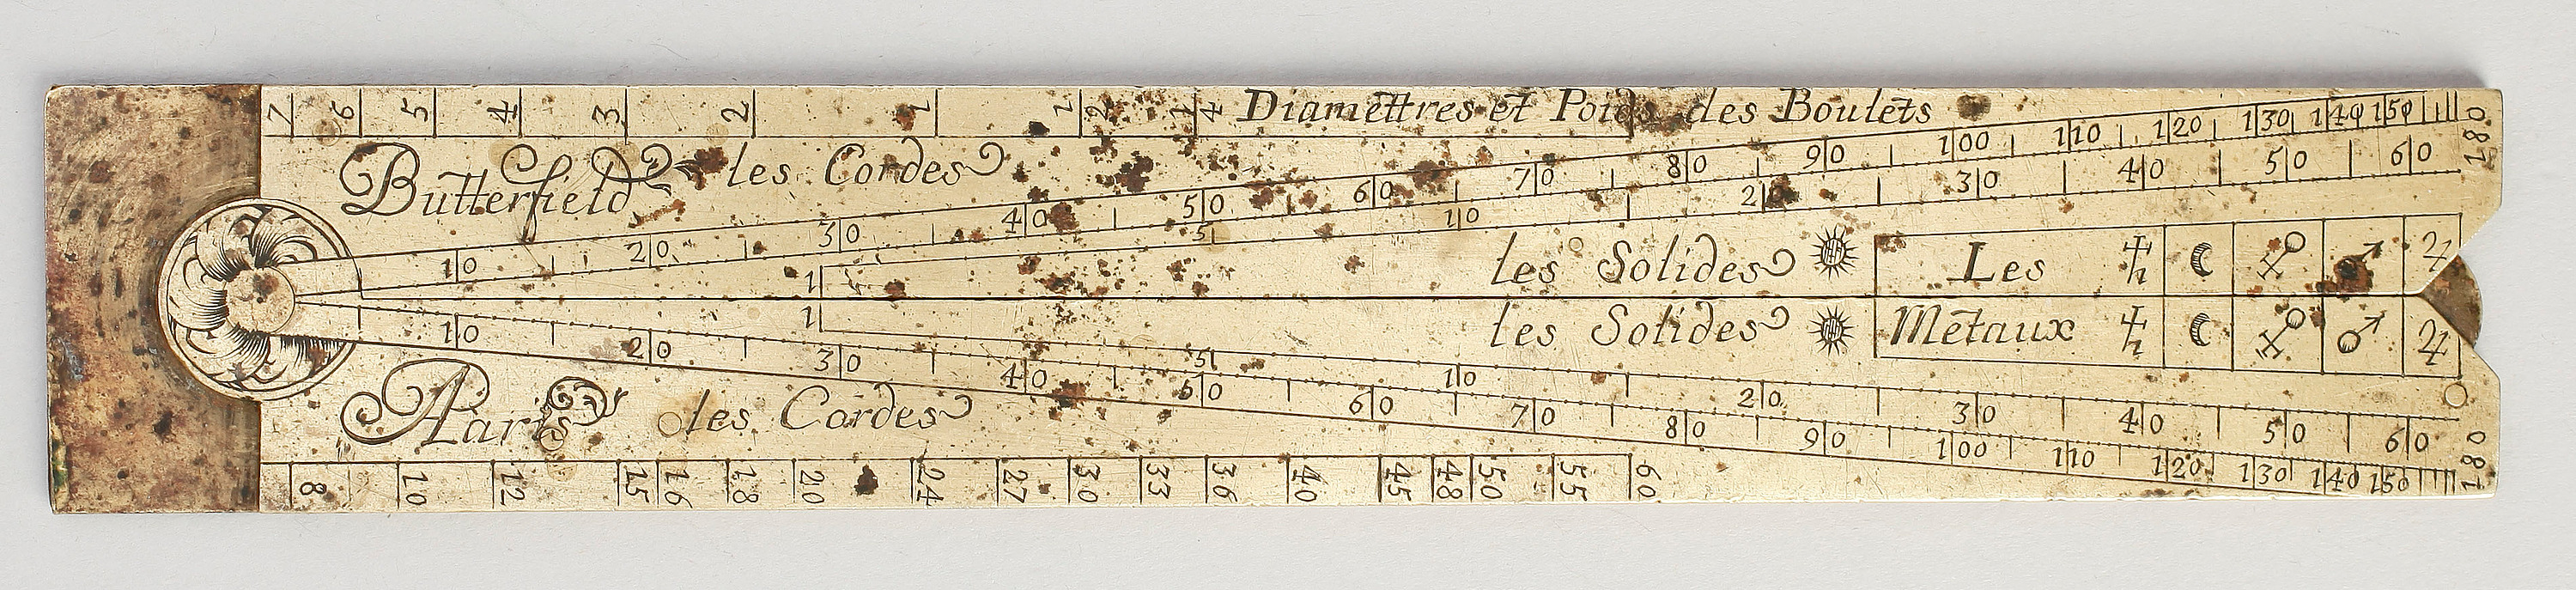 7 6 5 4 3 2 1 1/2 1/4 Diamettres et Poids des Boulets
Butterfield les Cordes
10 20 30 40 50 60 70 80 90 100 110 120 130 140 150 180
1 5 10 20 30 40 50 60
les Solides ☉ Les ♄ ☾ ♀ ♂ ♃
les Solides ☉ Metaux ♄ ☾ ♀ ♂ ♃
1 5 10 20 30 40 50 60
10 20 30 40 50 60 70 80 90 100 110 120 130 140 150 180
AParis les Cordes
8 10 12 15 16 18 20 24 27 30 33 36 40 45 48 50 55 60